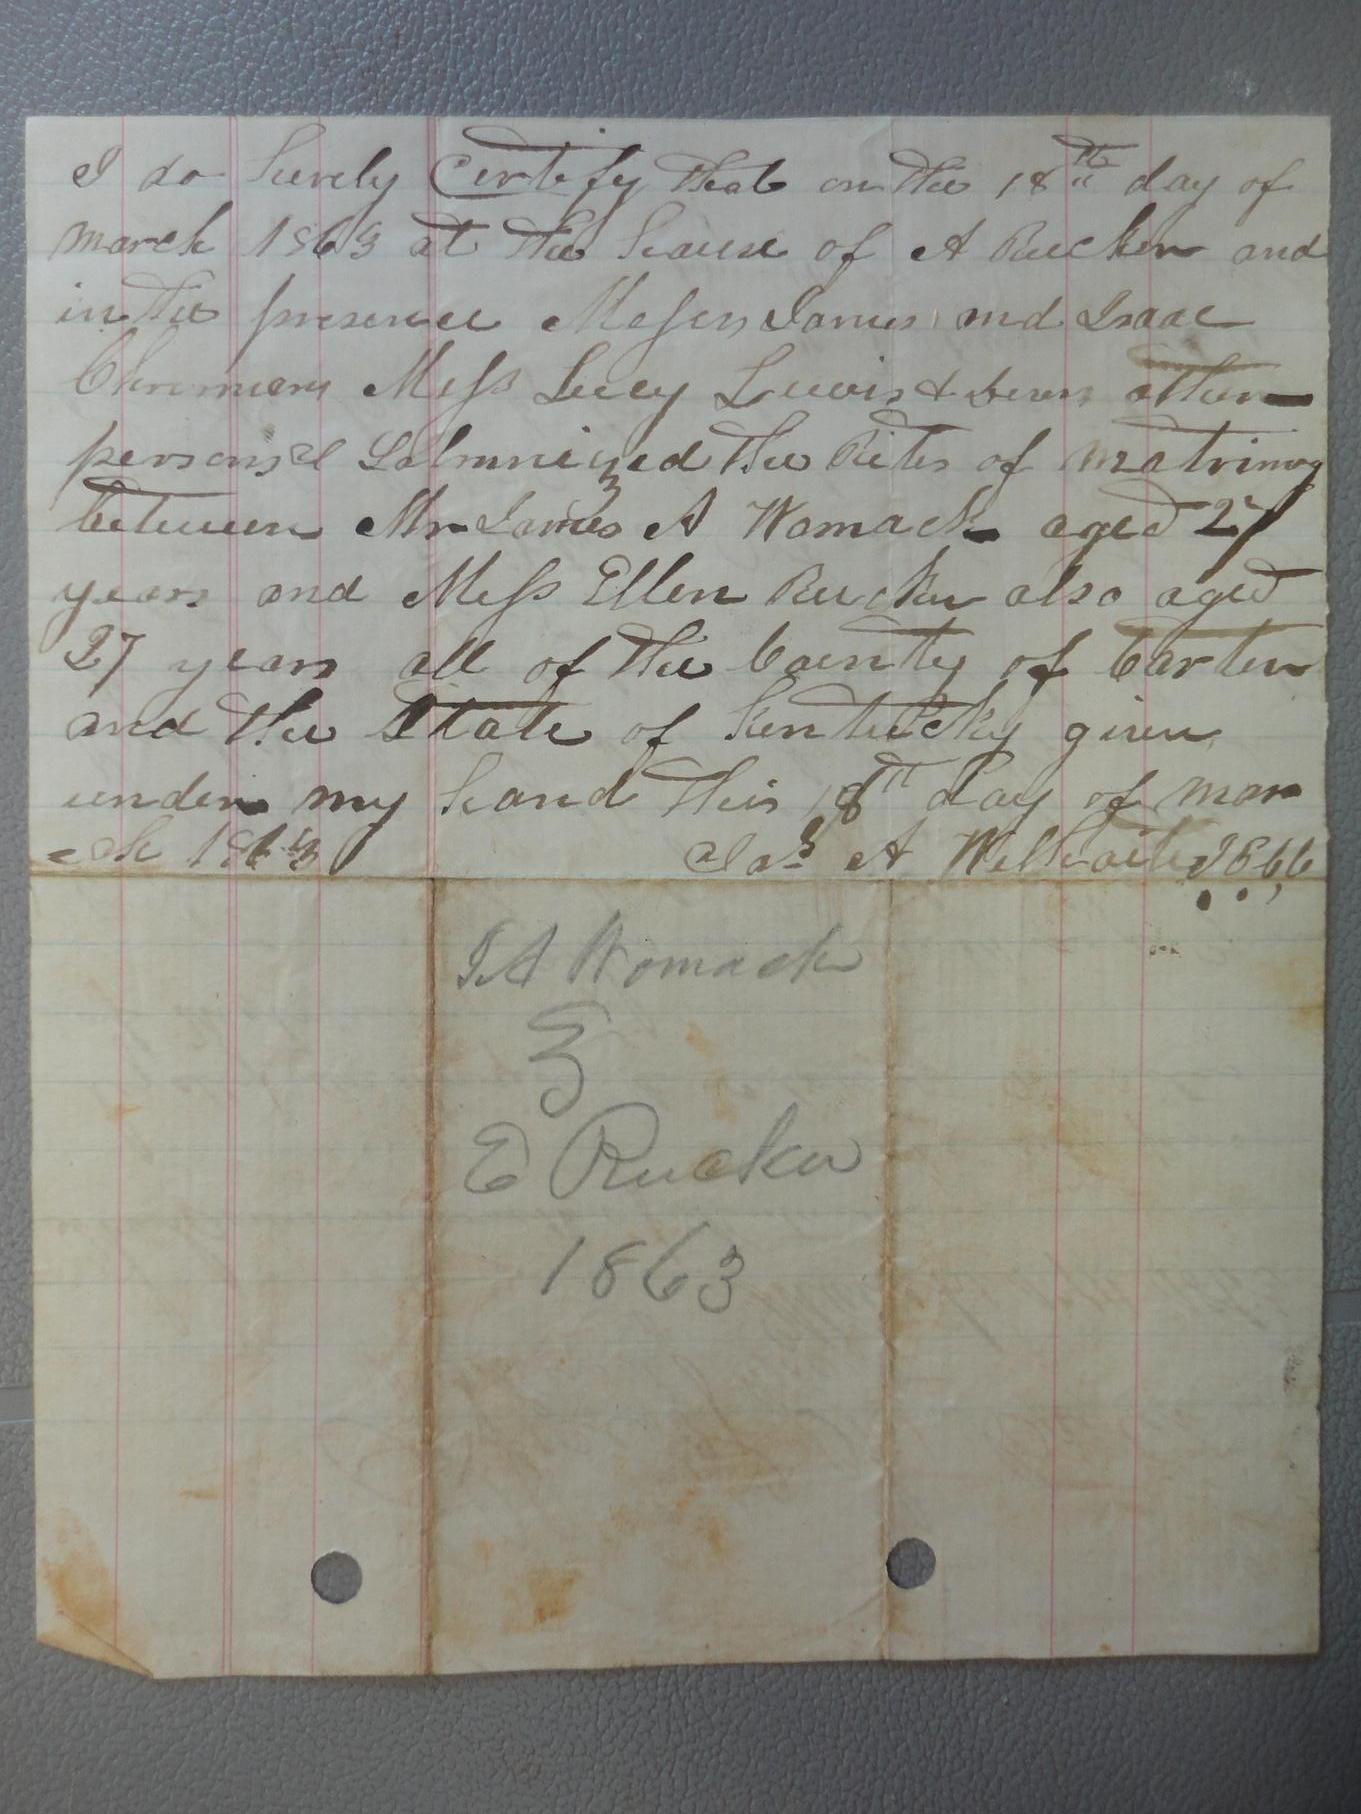 I do hereby Certify that on the 18th day of
march 1863 at the house of A Rucker and
in the presence Messrs James and Isaac
Miss Lucy Lewis & other
persons I Solmnized the Rites of matrimony
between Mr James A Womack aged 27
years and Miss Ellen Rucker also aged
27 years all of the County of Carter
and the State of Kentucky given
under my hand this 18th day of mar
ch 1863 Jas A
J A Womack
&
E Rucker
1863